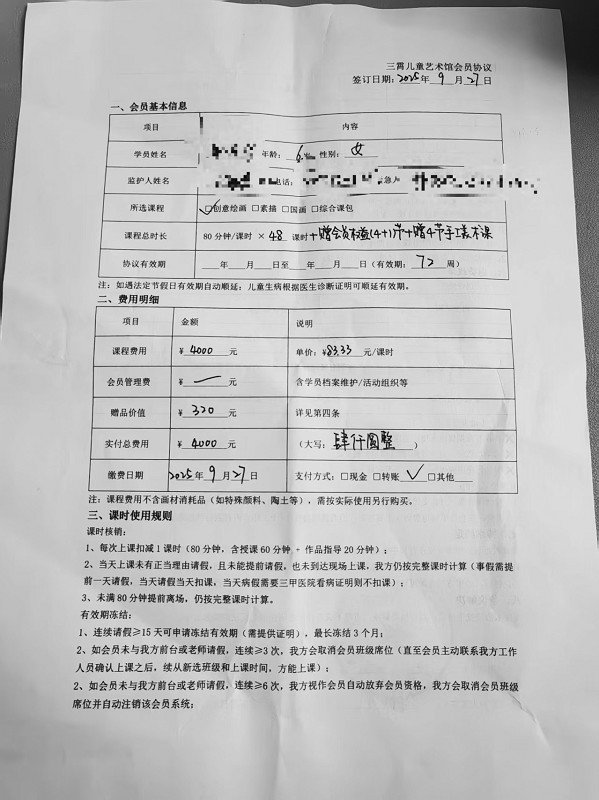 三霄儿童艺术馆会员协议
签订日期:2025年 9 月 27 日
一、会员基本信息
项目 内容
学员姓名 年龄: 6岁 性别: 女
监护人姓名 电话: 急人
所选课程 ☑创意绘画 □素描 □国画 □综合课包
课程总时长 80 分钟/课时 × 48 课时+赠会员(4+1)节+赠4节手工美术课
协议有效期 年 月 日至 年 月 日(有效期: 72 周)
注:如遇法定节假日有效期自动顺延;儿童生病根据医生诊断证明可顺延有效期。
二、费用明细
项目 金额 说明
课程费用 ¥ 4000 元 单价:¥83.33 元/课时
会员管理费 ¥ — 元 含学员档案维护/活动组织等
赠品价值 ¥ 320 元 详见第四条
实付总费用 ¥ 4000 元 (大写: 肆仟圆整 )
缴费日期 2025年 9 月27日 支付方式:□现金 □转账 ☑其他
注:课程费用不含画材消耗品(如特殊颜料、陶土等),需按实际使用另行购买。
三、课时使用规则
课时核销:
1、每次上课扣减 1 课时(80 分钟,含授课 60 分钟 + 作品指导 20 分钟);
2、当天上课未有正当理由请假,且未能提前请假,也未到达现场上课,我方仍按完整课时计算(事假需提
前一天请假,当天请假当天扣课,当天病假需要三甲医院看病证明则不扣课);
3、未满 80 分钟提前离场,仍按完整课时计算。
有效期冻结:
1、连续请假≥15 天可申请冻结有效期(需提供证明),最长冻结 3 个月;
2、如会员未与我方前台或老师请假,连续≥3 次,我方会取消会员班级席位(直至会员主动联系我方工作
人员确认上课之后,续从新选班级和上课时间,方能上课);
2、如会员未与我方前台或老师请假,连续≥6 次,我方视作会员自动放弃会员资格,我方会取消会员班级
席位并自动注销该会员系统;